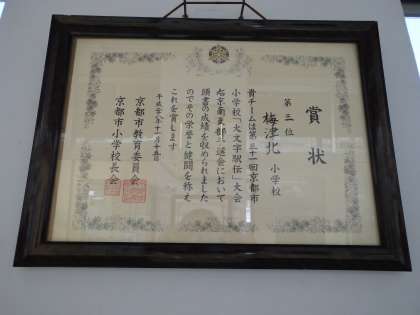 賞状
第三位
梅津北小学校
貴チームは第三十一回京都市
小学校「大文字駅伝」大会
右京南支部予選会において
頭書の成績を収められました
のでその栄誉と健闘を称え
これを賞します
京都市教育委員会
京都市小学校長会